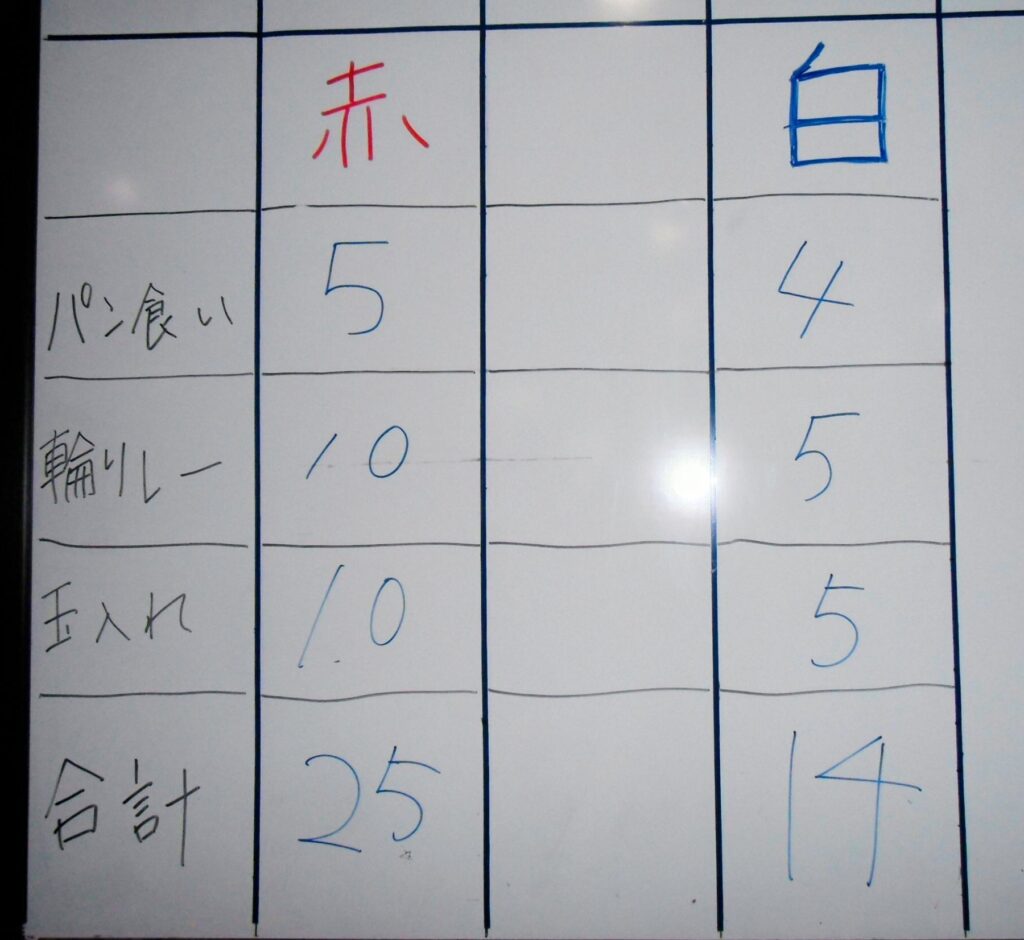 赤 白
パン食い 5 4
輪リレー 10 5
玉入れ 10 5
合計 25 14